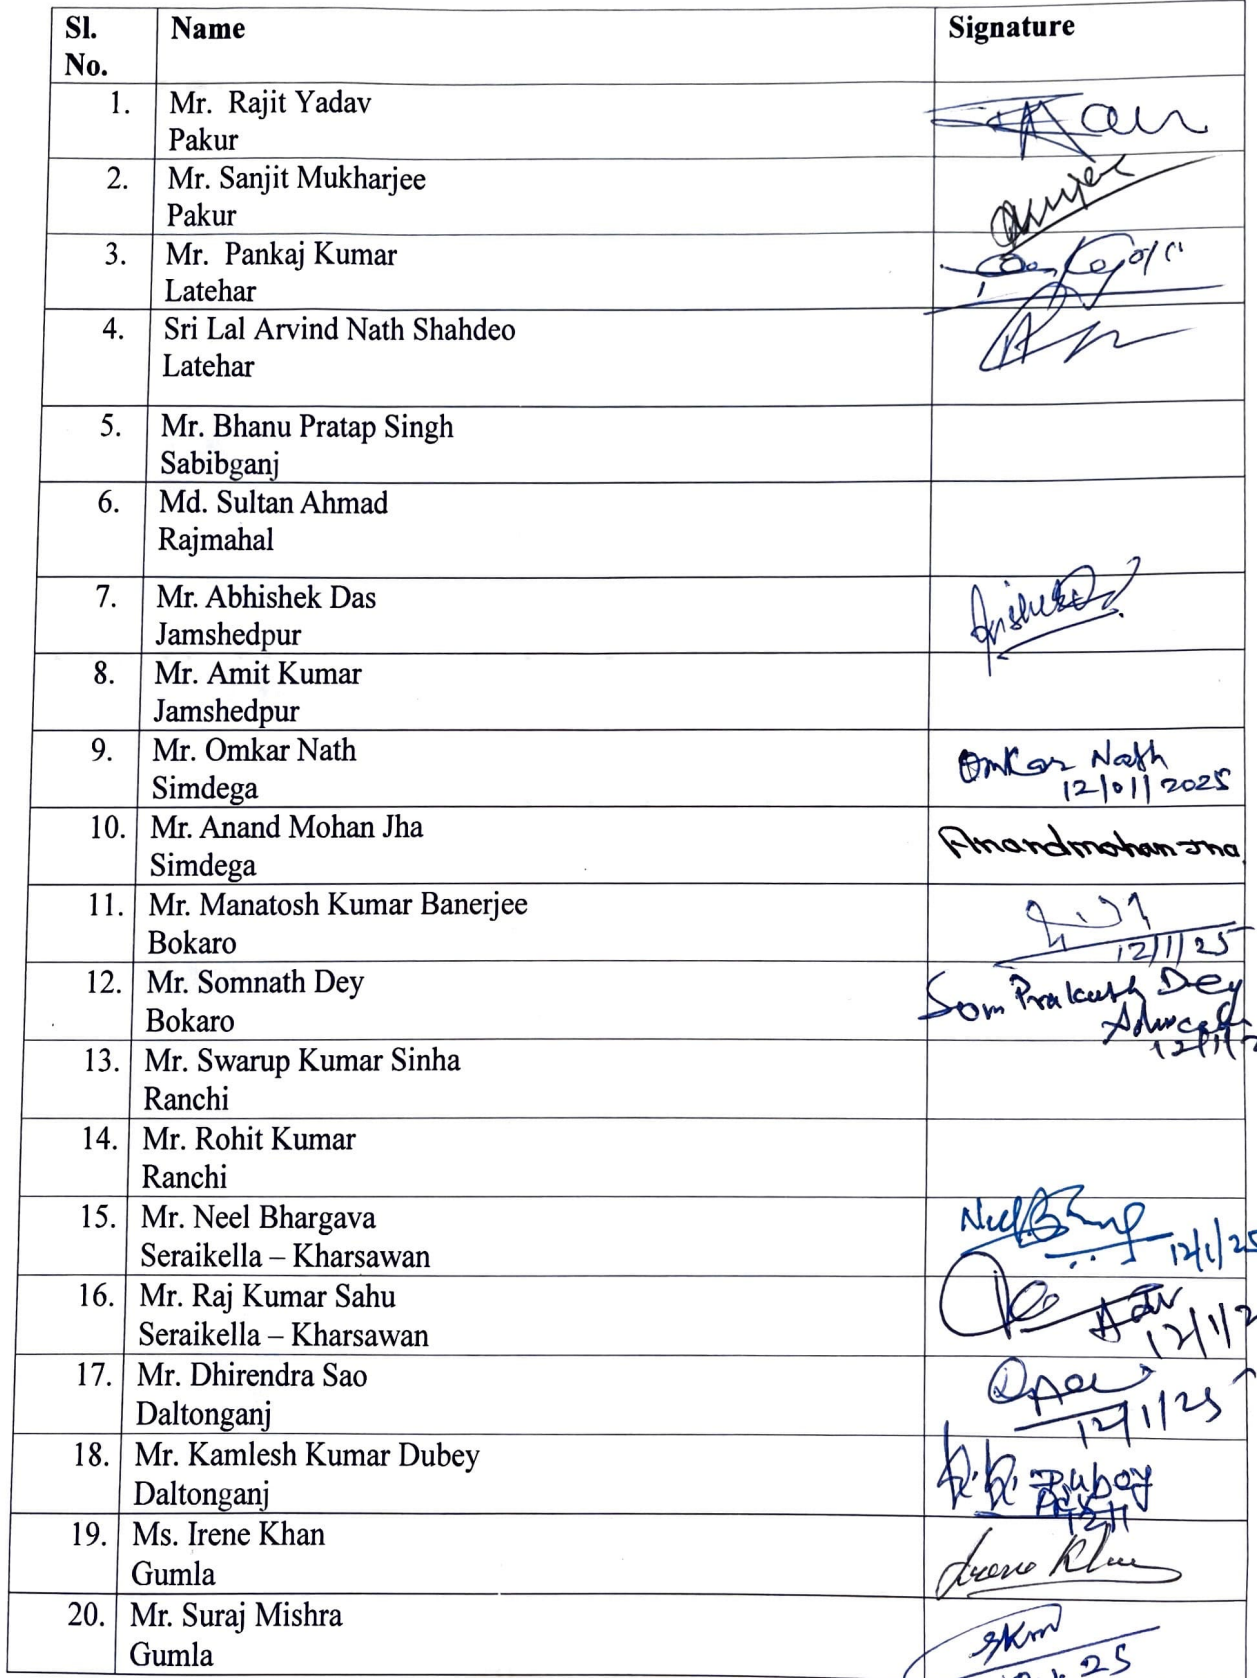 Sl. No. Name Signature
1. Mr. Rajit Yadav
Pakur
2. Mr. Sanjit Mukharjee
Pakur
3. Mr. Pankaj Kumar
Latehar
4. Sri Lal Arvind Nath Shahdeo
Latehar
5. Mr. Bhanu Pratap Singh
Sabibganj
6. Md. Sultan Ahmad
Rajmahal
7. Mr. Abhishek Das
Jamshedpur
8. Mr. Amit Kumar
Jamshedpur
9. Mr. Omkar Nath Omkar Nath
Simdega 12/01/2025
10. Mr. Anand Mohan Jha Anandmohan Jha
Simdega
11. Mr. Manatosh Kumar Banerjee
Bokaro 12/1/25
12. Mr. Somnath Dey Som Prakash Dey
Bokaro Advocate
13. Mr. Swarup Kumar Sinha
Ranchi
14. Mr. Rohit Kumar
Ranchi
15. Mr. Neel Bhargava
Seraikella – Kharsawan 12/1/25
16. Mr. Raj Kumar Sahu
Seraikella – Kharsawan 12/1/2
17. Mr. Dhirendra Sao
Daltonganj 12/1/25
18. Mr. Kamlesh Kumar Dubey K.K. Dubey
Daltonganj
19. Ms. Irene Khan Irene Khan
Gumla
20. Mr. Suraj Mishra SKM
Gumla